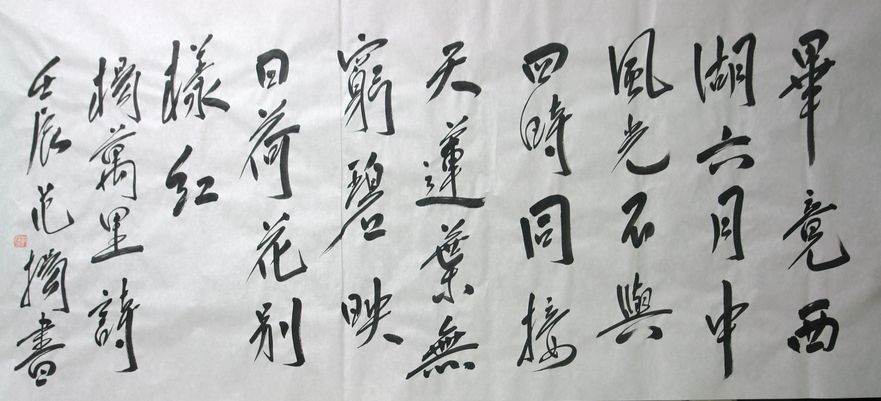 畢竟西
湖六月中
風光不與
四時同接
天蓮葉無
窮碧映
日荷花別
樣紅
楊萬里詩
壬辰范書